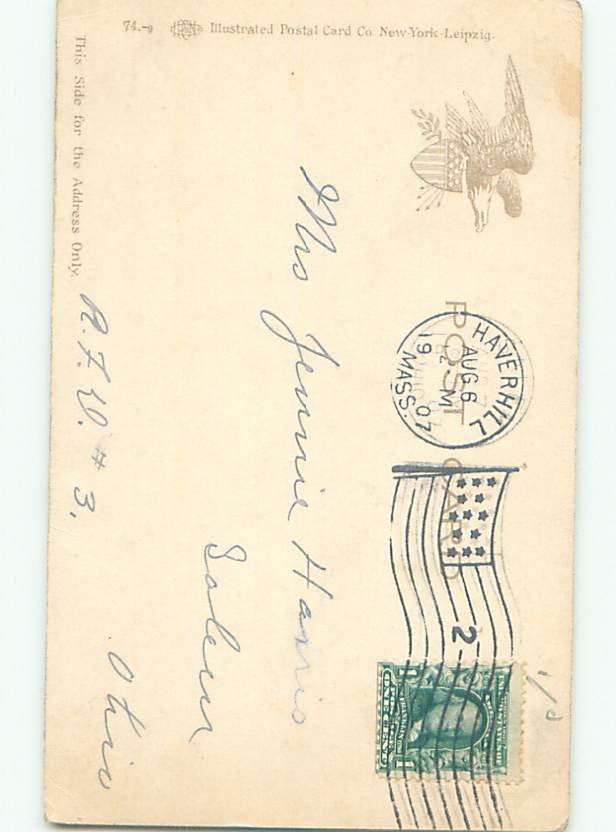 74.-9 Illustrated Postal Card Co. New-York-Leipzig.
POST CARD
HAVERHILL
AUG 6
2 M
1907
MASS.
2
1/d
Mrs Jennie Harris
Salem
Ohio
R.F.D. # 3.
This Side for the Address Only.